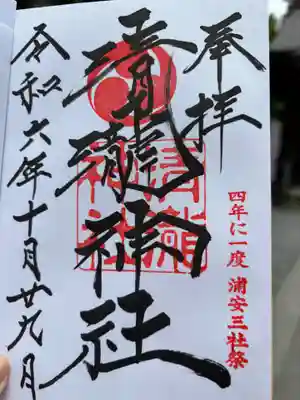 奉拝
四年に一度 浦安三社祭
清瀧神社
清瀧神社
令和六年十月廿九日